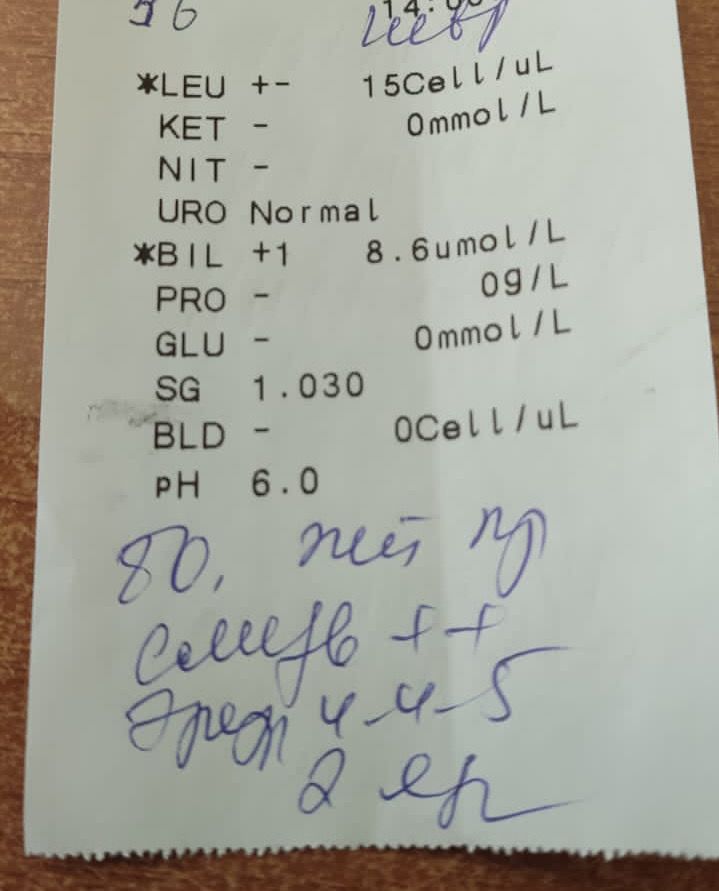 36
*LEU +- 15Cell/uL
KET - 0mmol/L
NIT -
URO Normal
*BIL +1 8.6umol/L
PRO - 0g/L
GLU - 0mmol/L
SG 1.030
BLD - 0Cell/uL
pH 6.0
80, пр
слизь ++
4-4-5
2